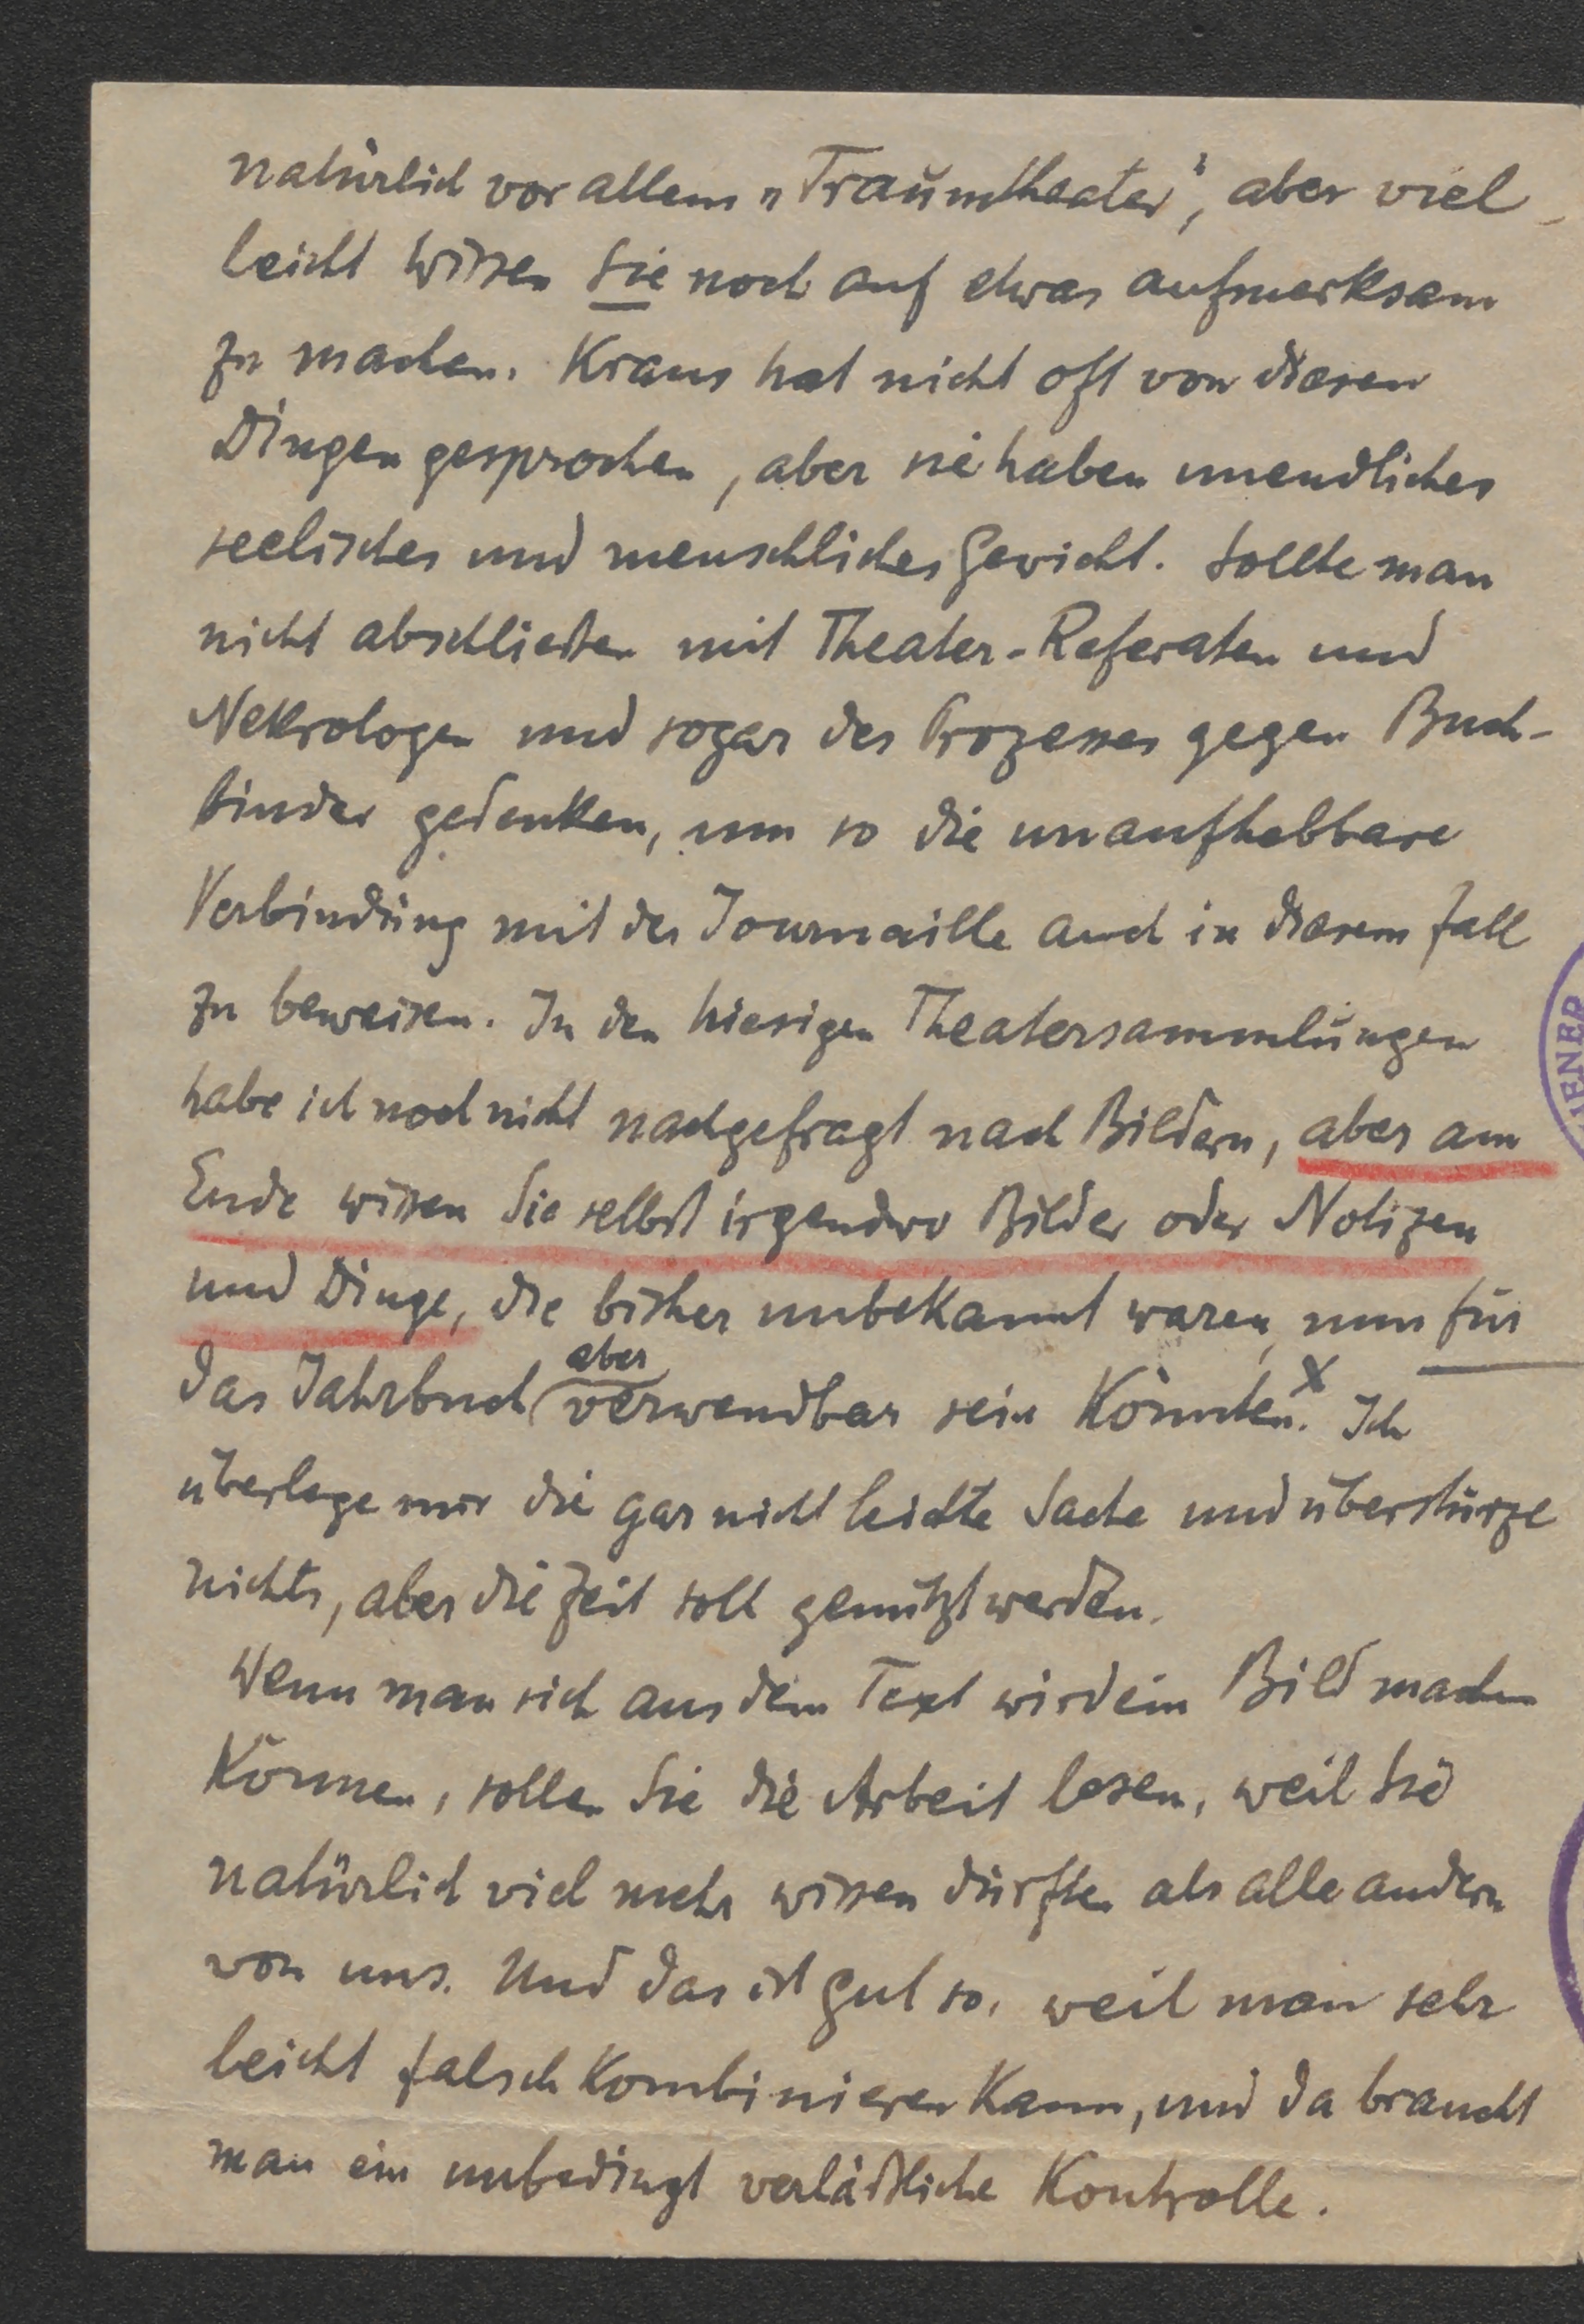 natürlich vor allem „Traumtheater“, aber viel-
leicht wissen Sie noch auf etwas aufmerksam
zu machen. Kraus hat nicht oft von diesen
Dingen gesprochen, aber sie haben unendliches
seelisches und menschliches Gewicht. Sollte man
nicht abschließen mit Theater-Referaten und
Nekrologen und sogar des Prozesses gegen Buch-
binder gedenken, um so die unaufhebbare
Verbindung mit der Journaille auch in diesem Fall
zu beweisen. In den hiesigen Theatersammlungen
habe ich noch nicht nachgefragt nach Bildern, aber am
Ende wissen Sie selbst irgendwo Bilder oder Notizen
und Dinge, die bisher unbekannt waren, nun für
aber
das Jahrbuch verwendbar sein könnten. X Ich
überlege mir die gar nicht leichte Sache und überstürze
nichts, aber die Zeit soll genützt werden.
Wenn man sich aus dem Text wird ein Bild machen
können, sollen Sie die Arbeit lesen, weil Sie
natürlich viel mehr wissen dürften als alle andern
von uns. Und das ist gut so, weil man sehr
leicht falsch kombinieren kann, und da braucht
man ein unbedingt verläßliche Kontrolle.
IENER